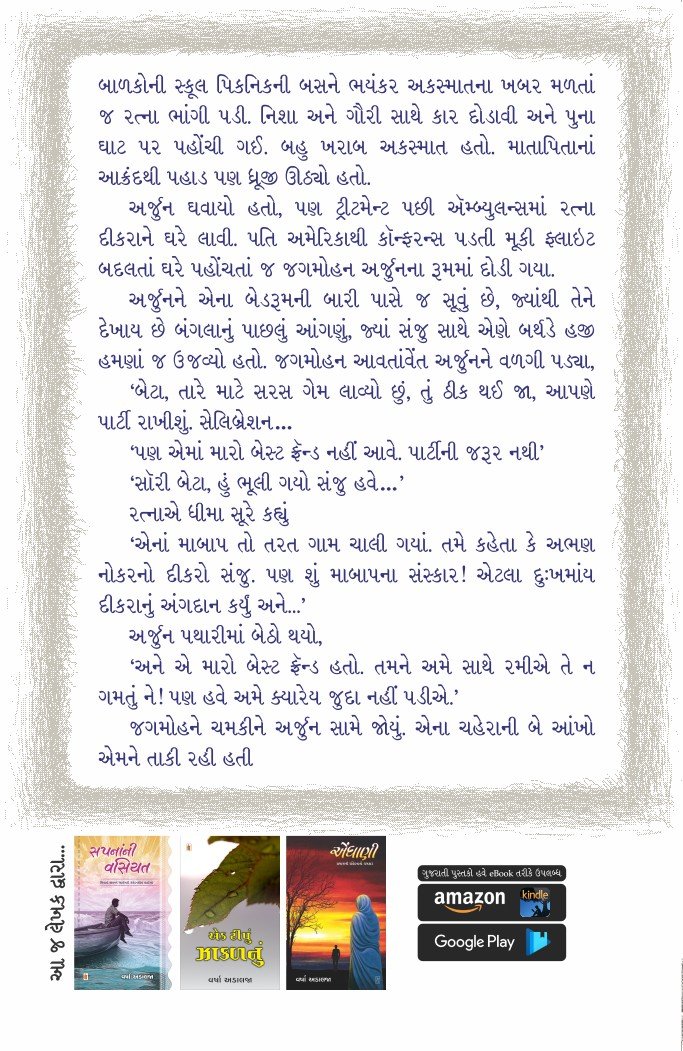 બાળકોની સ્કૂલ પિકનિકની બસને ભયંકર અકસ્માતના ખબર મળતાં
જ રત્ના ભાંગી પડી. નિશા અને ગૌરી સાથે કાર દોડાવી અને પુના
ઘાટ પર પહોંચી ગઈ. બહુ ખરાબ અકસ્માત હતો. માતાપિતાનાં
આક્રંદથી પહાડ પણ ધ્રૂજી ઊઠ્યો હતો.
અર્જુન ઘવાયો હતો, પણ ટ્રીટમેન્ટ પછી ઍમ્બ્યુલન્સમાં રત્ના
દીકરાને ઘરે લાવી. પતિ અમેરિકાથી કૉન્ફરન્સ પડતી મૂકી ફ્લાઇટ
બદલતાં ઘરે પહોંચતાં જ જગમોહન અર્જુનના રૂમમાં દોડી ગયા.
અર્જુનને એના બેડરૂમની બારી પાસે જ સૂવું છે, જ્યાંથી તેને
દેખાય છે બંગલાનું પાછલું આંગણું, જ્યાં સંજુ સાથે એણે બર્થડે હજી
હમણાં જ ઉજવ્યો હતો. જગમોહન આવતાંવેંત અર્જુનને વળગી પડ્યા,
‘બેટા, તારે માટે સરસ ગેમ લાવ્યો છું, તું ઠીક થઈ જા, આપણે
પાર્ટી રાખીશું. સેલિબ્રેશન...
‘પણ એમાં મારો બેસ્ટ ફ્રૅન્ડ નહીં આવે. પાર્ટીની જરૂર નથી’
‘સૉરી બેટા, હું ભૂલી ગયો સંજુ હવે...’
રત્નાએ ધીમા સૂરે કહ્યું
‘એનાં માબાપ તો તરત ગામ ચાલી ગયાં. તમે કહેતા કે અભણ
નોકરનો દીકરો સંજુ. પણ શું માબાપના સંસ્કાર! એટલા દુઃખમાંય
દીકરાનું અંગદાન કર્યું અને...’
અર્જુન પથારીમાં બેઠો થયો,
‘અને એ મારો બેસ્ટ ફ્રૅન્ડ હતો. તમને અમે સાથે રમીએ તે ન
ગમતું ને! પણ હવે અમે ક્યારેય જુદા નહીં પડીએ.’
જગમોહને ચમકીને અર્જુન સામે જોયું. એના ચહેરાની બે આંખો
એમને તાકી રહી હતી
આ જ લેખક દ્વારા...
સપનાંની
વસિયત
વર્ષા અડાલજા
એક ટીપું
ઝાકળનું
વર્ષા અડાલજા
એંધાણી
વર્ષા અડાલજા
ગુજરાતી પુસ્તકો હવે eBook તરીકે ઉપલબ્ધ
amazon kindle
Google Play